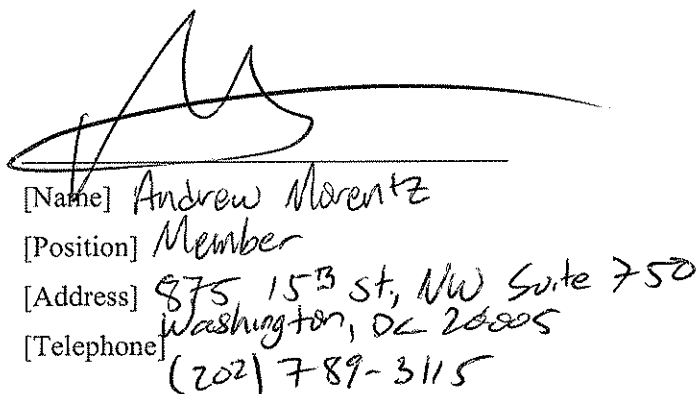 [Name] Andrew Morentz
[Position] Member
[Address] 875 15th St., NW Suite 750
Washington, DC 20005
[Telephone]
(202) 789-3115